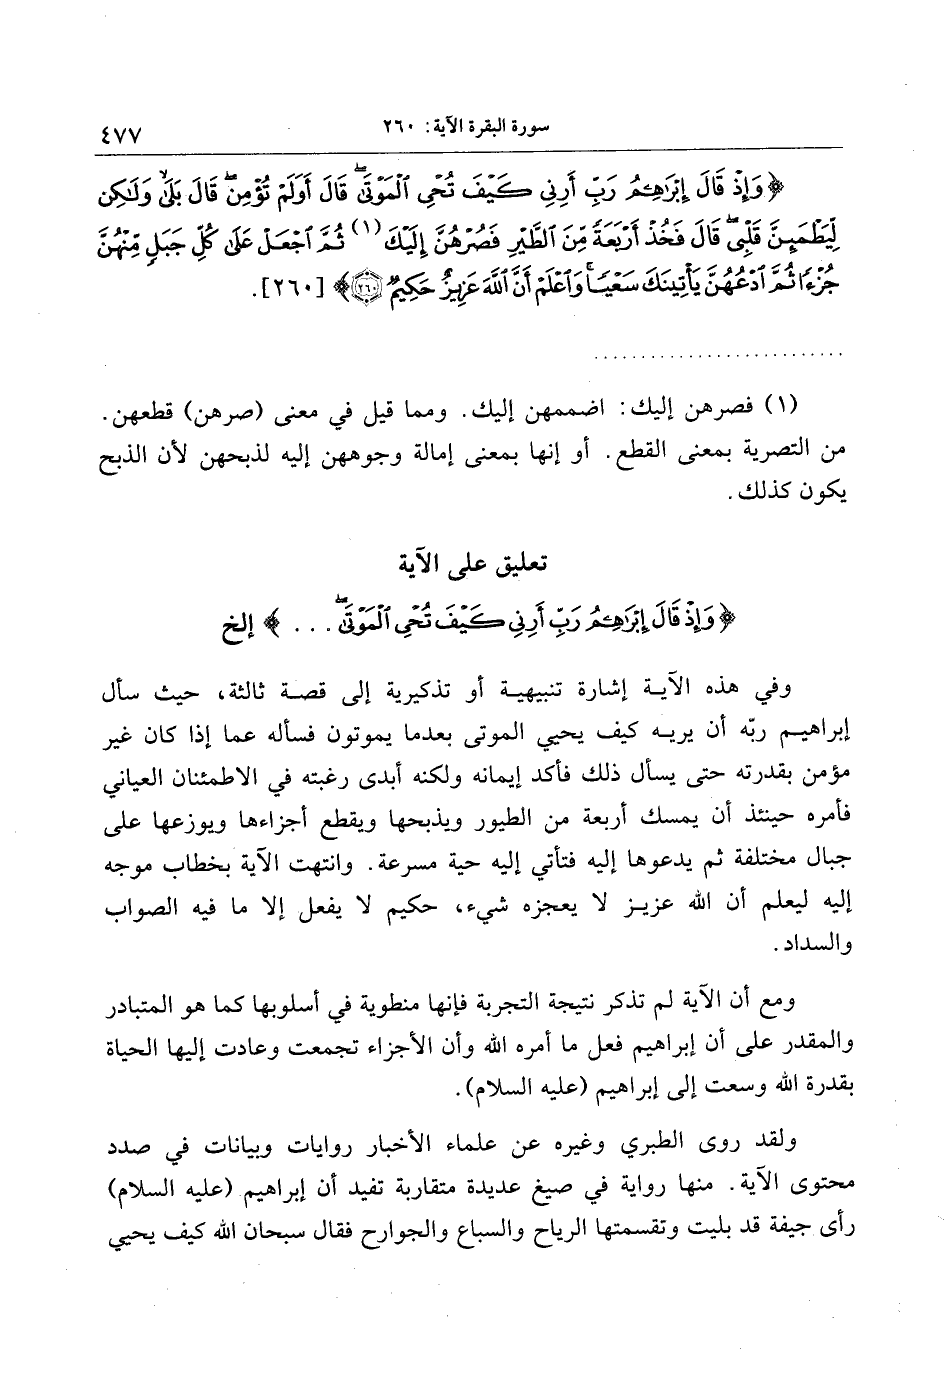 سورة البقرة الآية: ٢٦٠
٤٧٧
﴿وَإِذْ قَالَ إِبْرَاهِيمُ رَبِّ أَرِنِي كَيْفَ تُحْيِ الْمَوْتَىٰ ۖ قَالَ أَوَلَمْ تُؤْمِن ۖ قَالَ بَلَىٰ وَلَٰكِن
لِّيَطْمَئِنَّ قَلْبِي ۖ قَالَ فَخُذْ أَرْبَعَةً مِّنَ الطَّيْرِ فَصُرْهُنَّ إِلَيْكَ (١) ثُمَّ اجْعَلْ عَلَىٰ كُلِّ جَبَلٍ مِّنْهُنَّ
جُزْءًا ثُمَّ ادْعُهُنَّ يَأْتِينَكَ سَعْيًا ۚ وَاعْلَمْ أَنَّ اللَّهَ عَزِيزٌ حَكِيمٌ ٢٦٠﴾ [٢٦٠].
...........................
(١) فصرهن إليك: اضممهن إليك. ومما قيل في معنى (صرهن) قطعهن.
من التصرية بمعنى القطع. أو إنها بمعنى إمالة وجوههن إليه لذبحهن لأن الذبح
يكون كذلك.
تعليق على الآية
﴿وَإِذْ قَالَ إِبْرَاهِيمُ رَبِّ أَرِنِي كَيْفَ تُحْيِ الْمَوْتَىٰ ۖ ...﴾ إلخ
وفي هذه الآية إشارة تنبيهية أو تذكيرية إلى قصة ثالثة، حيث سأل
إبراهيم ربّه أن يريه كيف يحيي الموتى بعدما يموتون فسأله عما إذا كان غير
مؤمن بقدرته حتى يسأل ذلك فأكد إيمانه ولكنه أبدى رغبته في الاطمئنان العياني
فأمره حينئذ أن يمسك أربعة من الطيور ويذبحها ويقطع أجزاءها ويوزعها على
جبال مختلفة ثم يدعوها إليه فتأتي إليه حية مسرعة. وانتهت الآية بخطاب موجه
إليه ليعلم أن الله عزيز لا يعجزه شيء، حكيم لا يفعل إلا ما فيه الصواب
والسداد.
ومع أن الآية لم تذكر نتيجة التجربة فإنها منطوية في أسلوبها كما هو المتبادر
والمقدر على أن إبراهيم فعل ما أمره الله وأن الأجزاء تجمعت وعادت إليها الحياة
بقدرة الله وسعت إلى إبراهيم (عليه السلام).
ولقد روى الطبري وغيره عن علماء الأخبار روايات وبيانات في صدد
محتوى الآية. منها رواية في صيغ عديدة متقاربة تفيد أن إبراهيم (عليه السلام)
رأى جيفة قد بليت وتقسمتها الرياح والسباع والجوارح فقال سبحان الله كيف يحيي